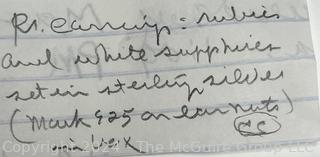 Pr. earrings: rubies
and white sapphires
set in sterling silver
(mark 925 on ear nuts)
in box CC
© The McGuire Group, LLC